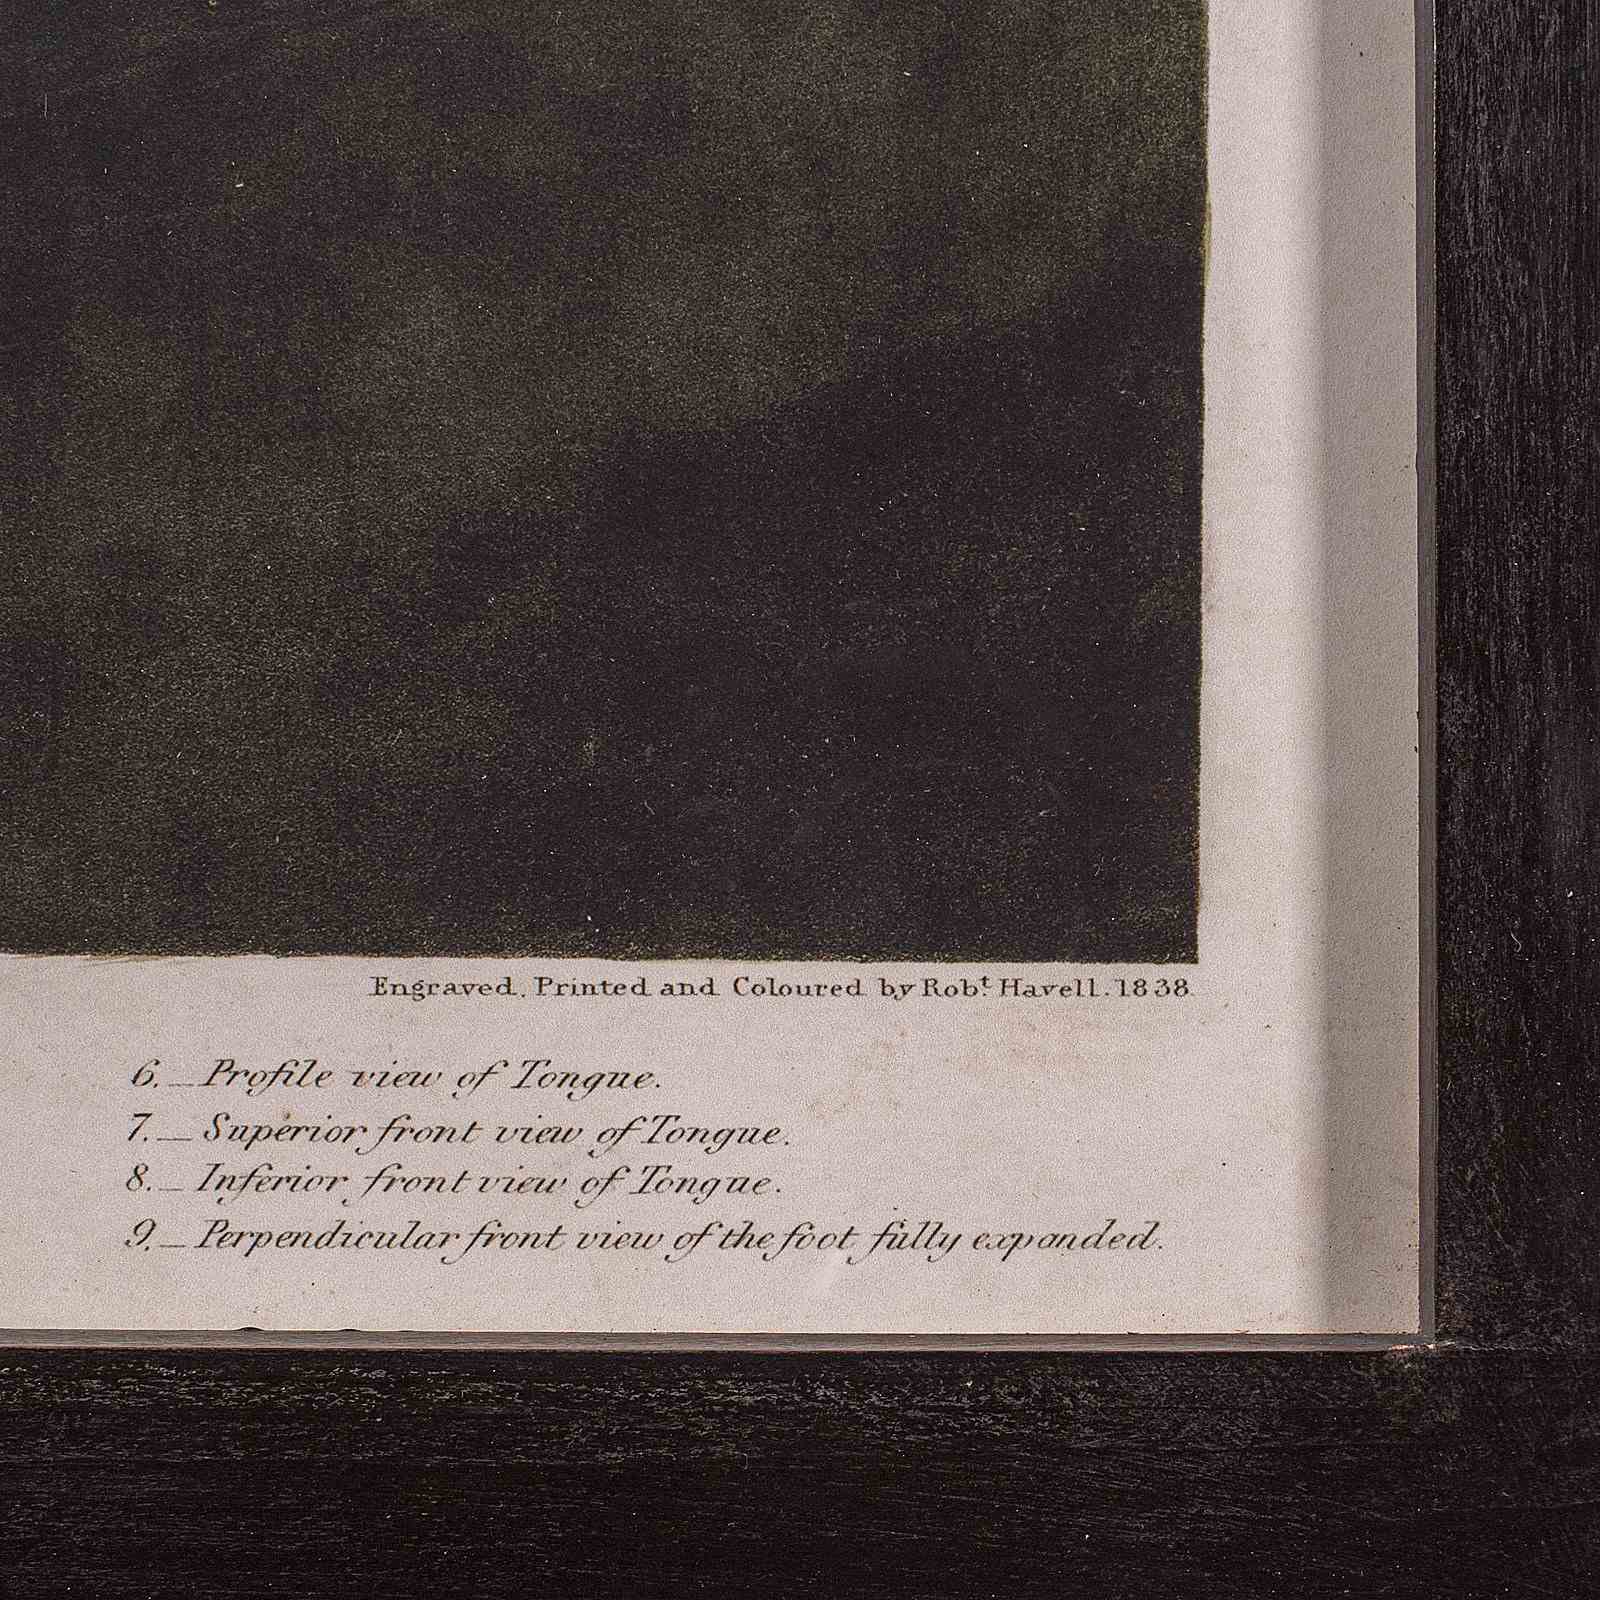 Engraved, Printed and Coloured by Robt. Havell. 1838.
6. — Profile view of Tongue.
7. — Superior front view of Tongue.
8. — Inferior front view of Tongue.
9. — Perpendicular front view of the foot fully expanded.